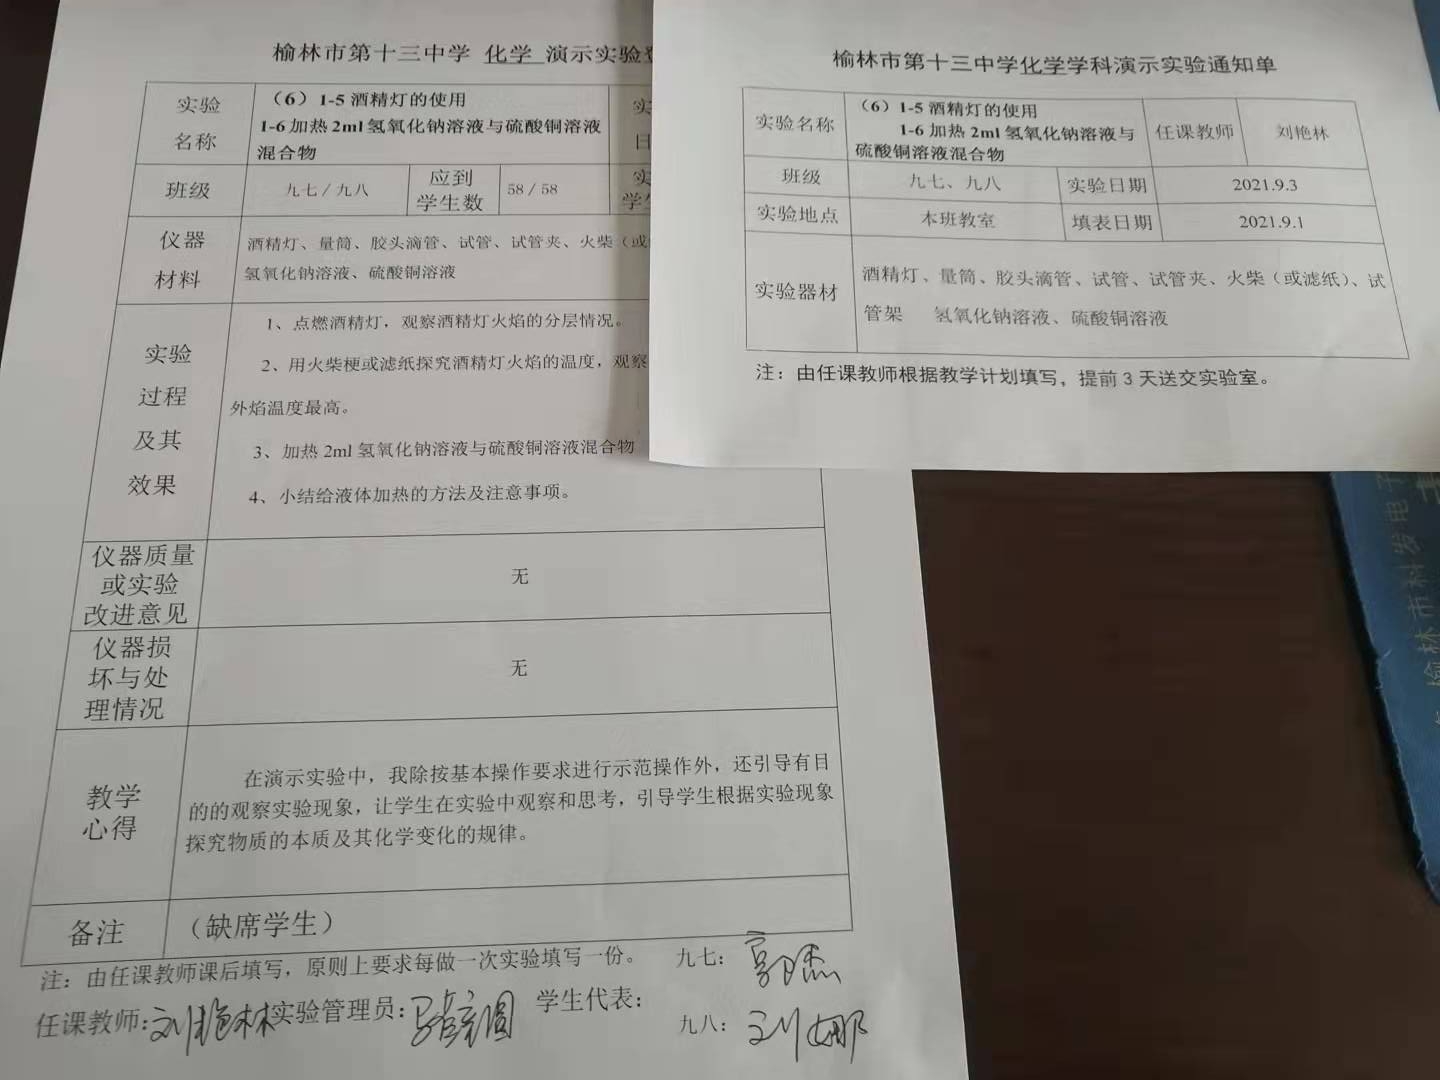 榆林市第十三中学 化学 演示实验
实验
名称
（6）1-5 酒精灯的使用
1-6 加热 2ml 氢氧化钠溶液与硫酸铜溶液
混合物
班级
九七／九八
应到
学生数
58／58
仪器
材料
酒精灯、量筒、胶头滴管、试管、试管夹、火柴（或
氢氧化钠溶液、硫酸铜溶液
实验
过程
及其
效果
1、点燃酒精灯，观察酒精灯火焰的分层情况。
2、用火柴梗或滤纸探究酒精灯火焰的温度，观察
外焰温度最高。
3、加热 2ml 氢氧化钠溶液与硫酸铜溶液混合物
4、小结给液体加热的方法及注意事项。
仪器质量
或实验
改进意见
无
仪器损
坏与处
理情况
无
教学
心得
在演示实验中，我除按基本操作要求进行示范操作外，还引导有目
的的观察实验现象，让学生在实验中观察和思考，引导学生根据实验现象
探究物质的本质及其化学变化的规律。
备注
（缺席学生）
注：由任课教师课后填写，原则上要求每做一次实验填写一份。
任课教师：刘艳林 实验管理员： 学生代表：
九七：
九八：刘娜
榆林市第十三中学化学学科演示实验通知单
实验名称
（6）1-5 酒精灯的使用
1-6 加热 2ml 氢氧化钠溶液与
硫酸铜溶液混合物
任课教师
刘艳林
班级
九七、九八
实验日期
2021.9.3
实验地点
本班教室
填表日期
2021.9.1
实验器材
酒精灯、量筒、胶头滴管、试管、试管夹、火柴（或滤纸）、试
管架 氢氧化钠溶液、硫酸铜溶液
注：由任课教师根据教学计划填写，提前 3 天送交实验室。
榆林市科发电子